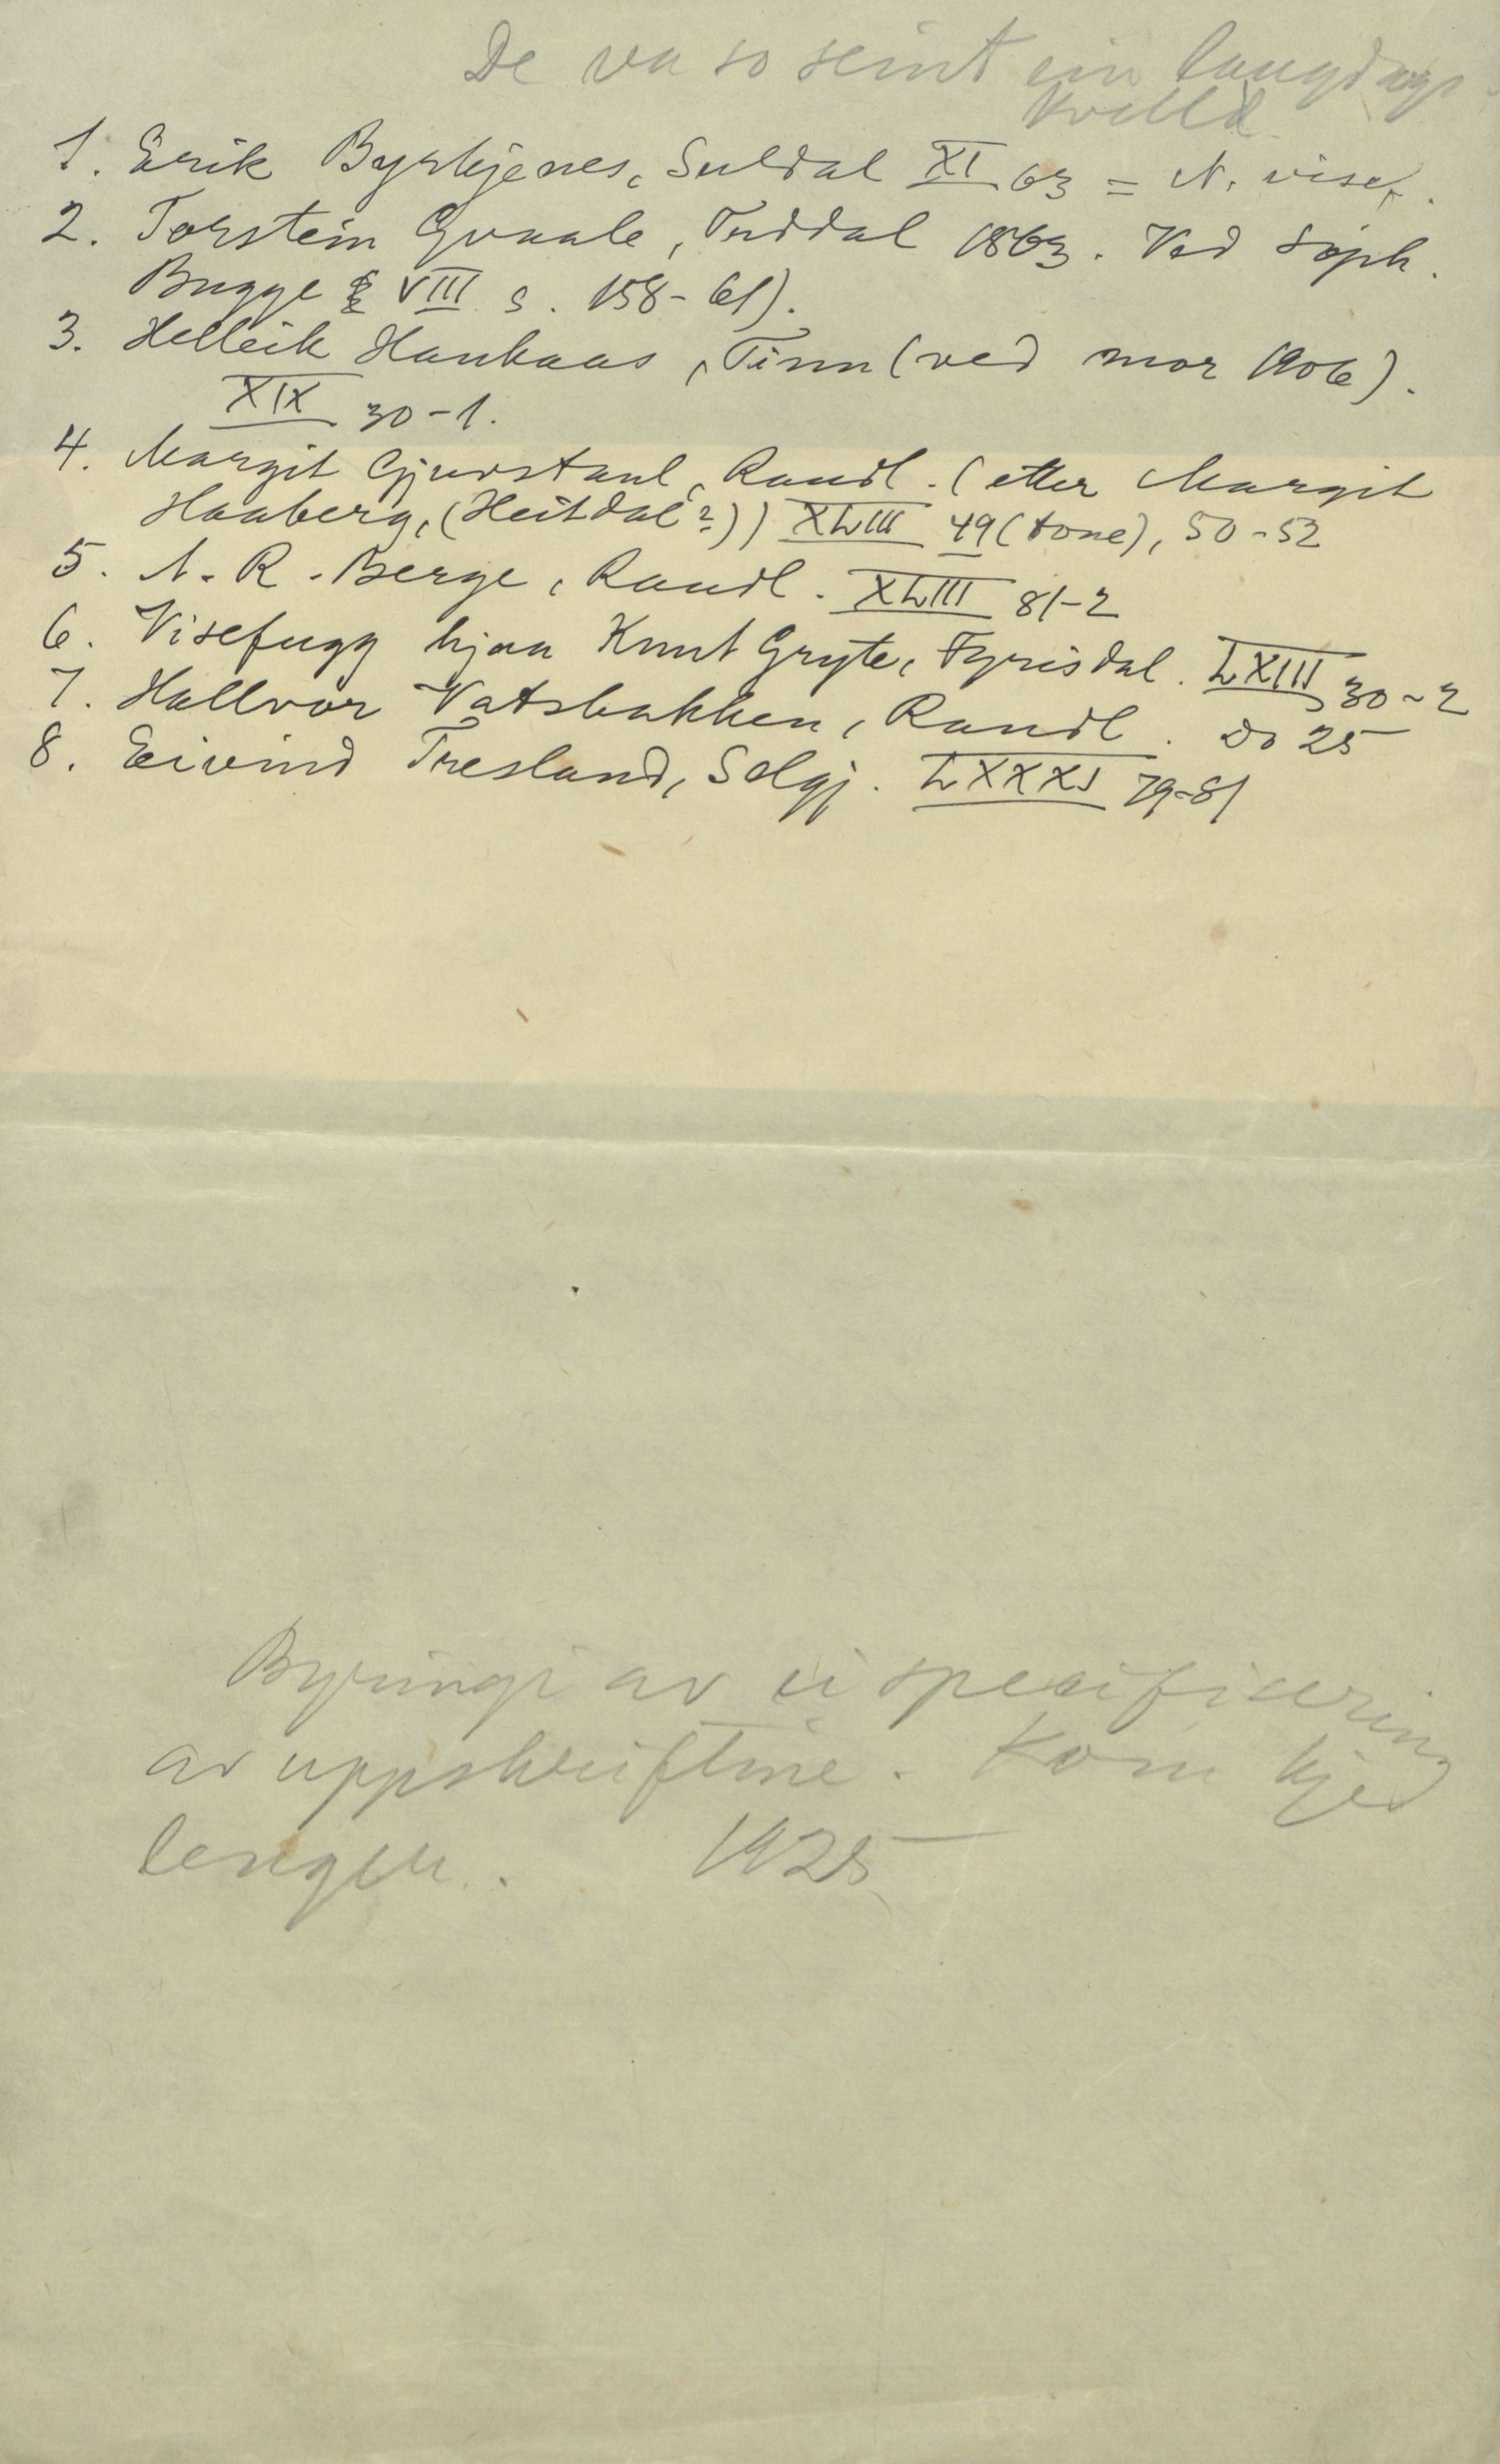 De va so seint ein laugdags-
kvelld
1. Erik Byrkjenes, Suldal XI 63 = N. visef.
2. Torstein Gvaale, Tuddal 1863. Ved Soph.
Bugge VIII s. 158-61).
3. Helleik Haukaas, Tinn (ved mor 1906).
XIX 30-1.
4. Margit Gjuvstaul, Raudl. (etter Margit
Haaberg, (Heitdal?)) XLIII 49 (tone), 50-52
5. N. R. Berge, Raudl. XLIII 81-2
6. Visefugg hjaa Knut Gryte, Fyrisdal. LXIII 30-2
7. Hallvor Vatsbakken, Raudl. Do 25
8. Eivind Tresland, Selgj. LXXXI 79-81
Byringi av ei spesifisering
av uppskriftine. Kom kje
lenger. 1925